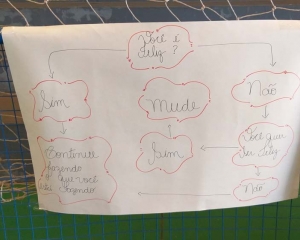 Você é
feliz ?
Sim
Mude
Não
Continue
fazendo
o que você
está fazendo
Sim
Você quer
ser feliz
Não